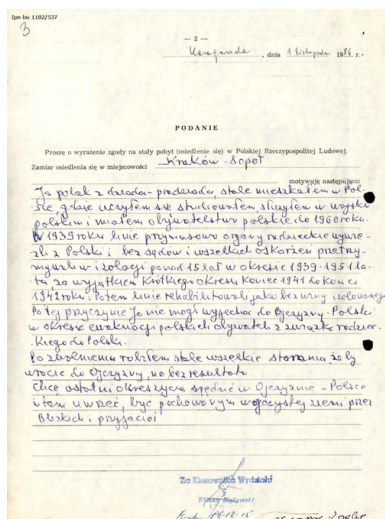 Ipn bu 1192/537
3
— 2 —
Karaganda, dnia 1 listopada 1986 r.
PODANIE
Proszę o wyrażenie zgody na stały pobyt (osiedlenie się) w Polskiej Rzeczypospolitej Ludowej.
Zamiar osiedlenia się w miejscowości Kraków - Sopot
motywuję następująco:
Ja polak z dziada-pradziada stale mieszkałem w Pol-
sce gdzie uczyłem się studiowałem służyłem w wojsku
polskim i miałem obywatelstwo polskie do 1960 roku.
W 1939 roku mnie przymusowo organy radzieckie wywie-
zli z Polski i bez sądów i wszelkich oskarżeń przetrzy-
mywali w izolacji ponad 15 lat w okresie 1939-1951 la-
ta za wyjątkiem krótkiego okresu koniec 1941 do końca
1942 roku. Potem mnie rehabilitowali jako bez winy izolowanego
Po tej przyczynie ja nie mogł wyjechać do Ojczyzny-Polski
w okresie ewakuacji polskich obywateli z związku radziec-
kiego do Polski.
Po zwolnieniu robiłem stale wszelkie starania, żeby
wrócić do Ojczyzny, no bez rezultatu.
Chcę ostatni okres życia spędzić w Ojczyźnie - Polsce
i tam umrzeć, być pochowanym w ojczystej ziemi przez
bliskich i przyjaciół
Za Kierownika Wydziału